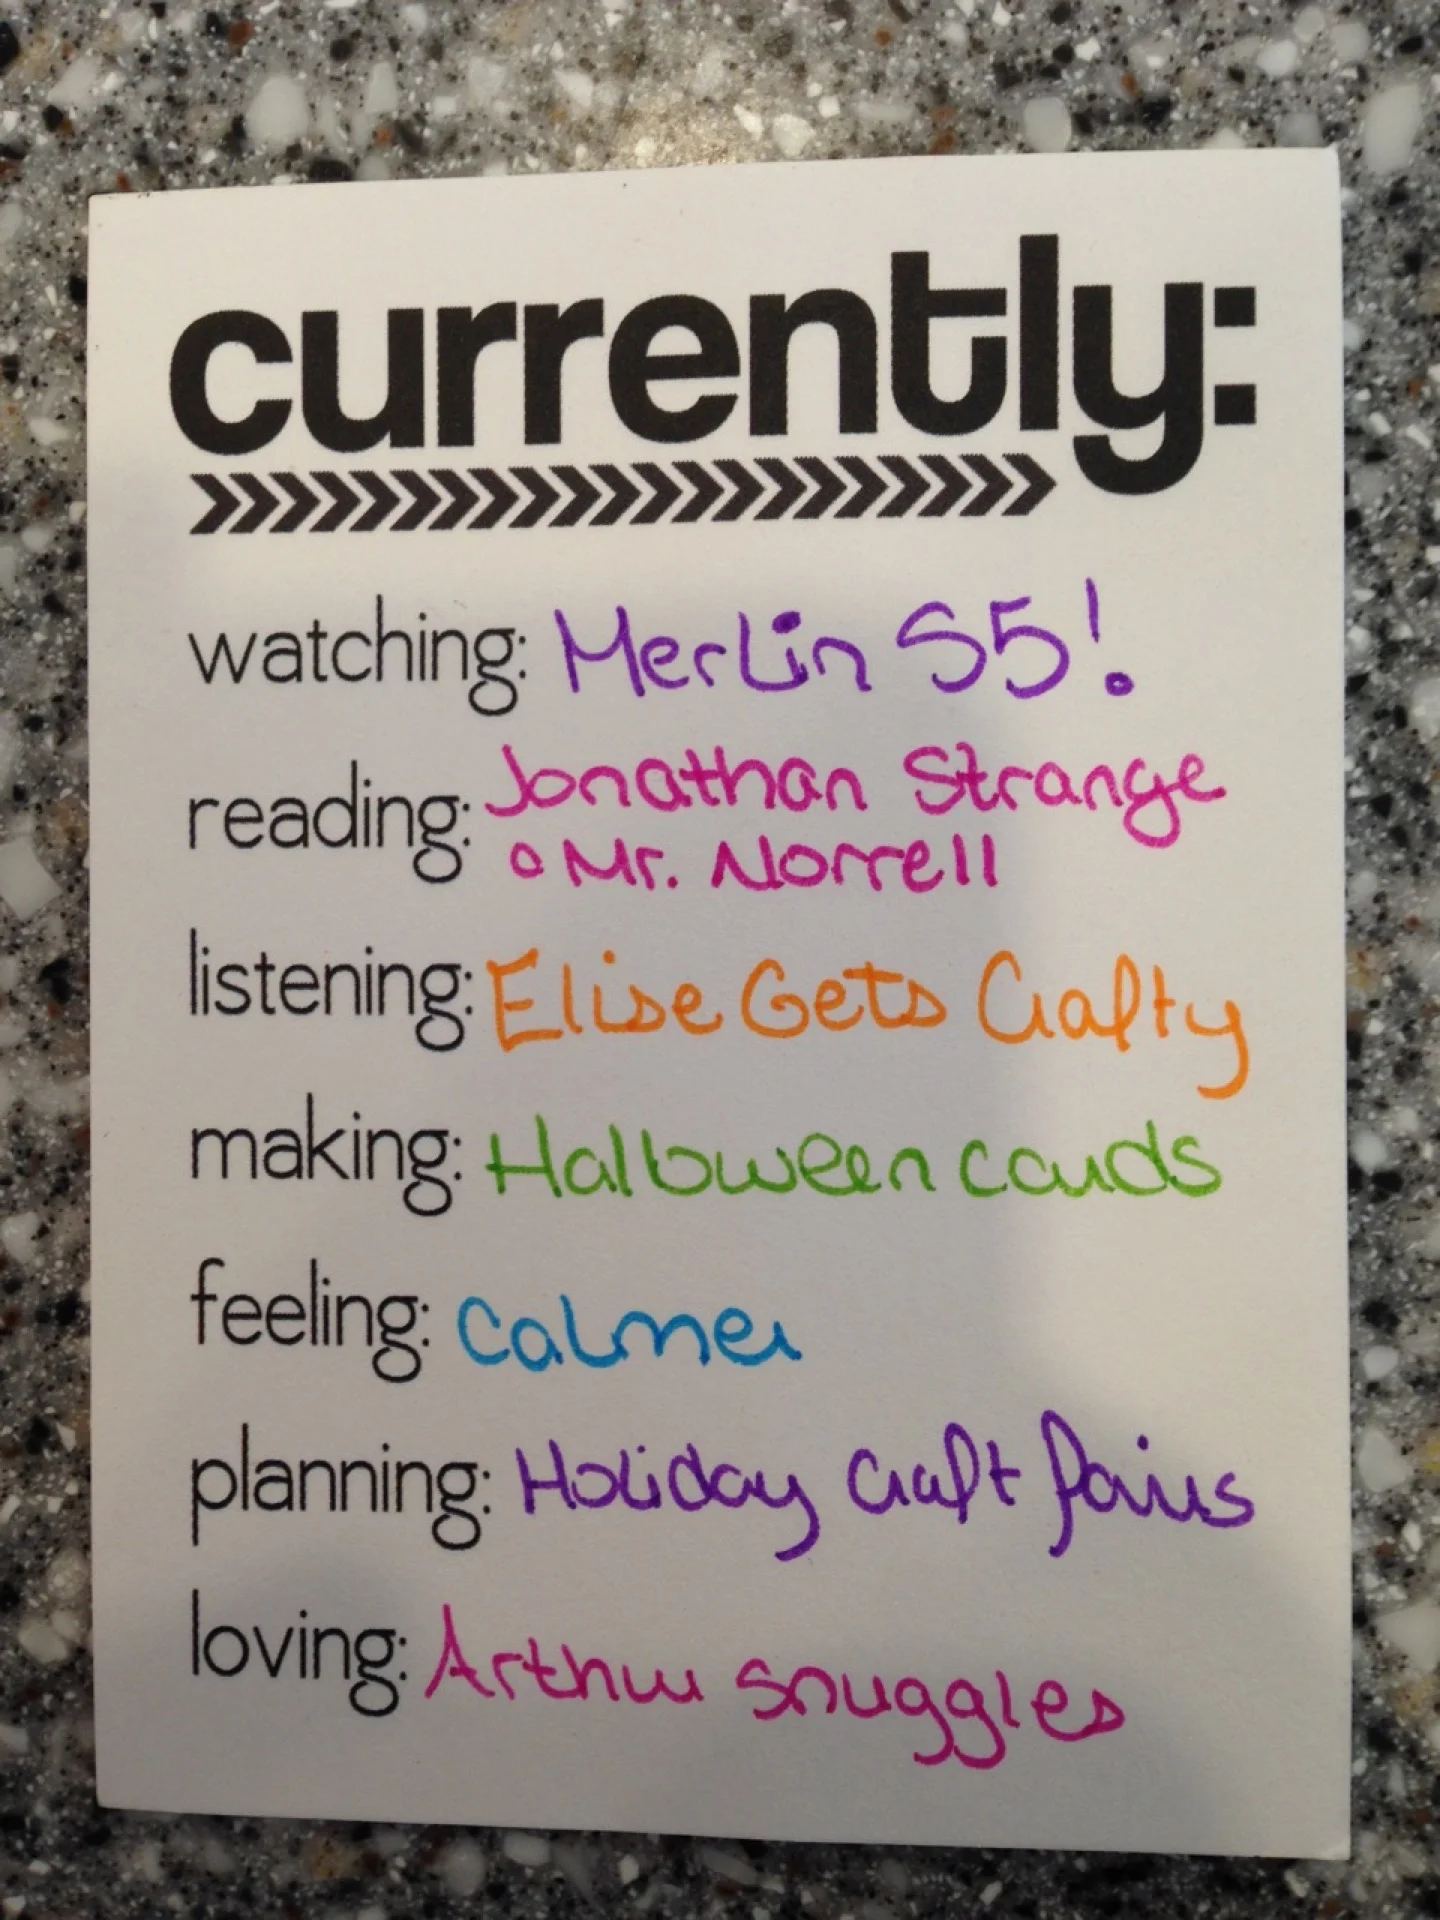 currently:
watching: Merlin S5!
reading: Jonathan Strange
& Mr. Norrell
listening: Elise Gets Crafty
making: Halloween cards
feeling: Calmer
planning: Holiday Craft fairs
loving: Arthur snuggles